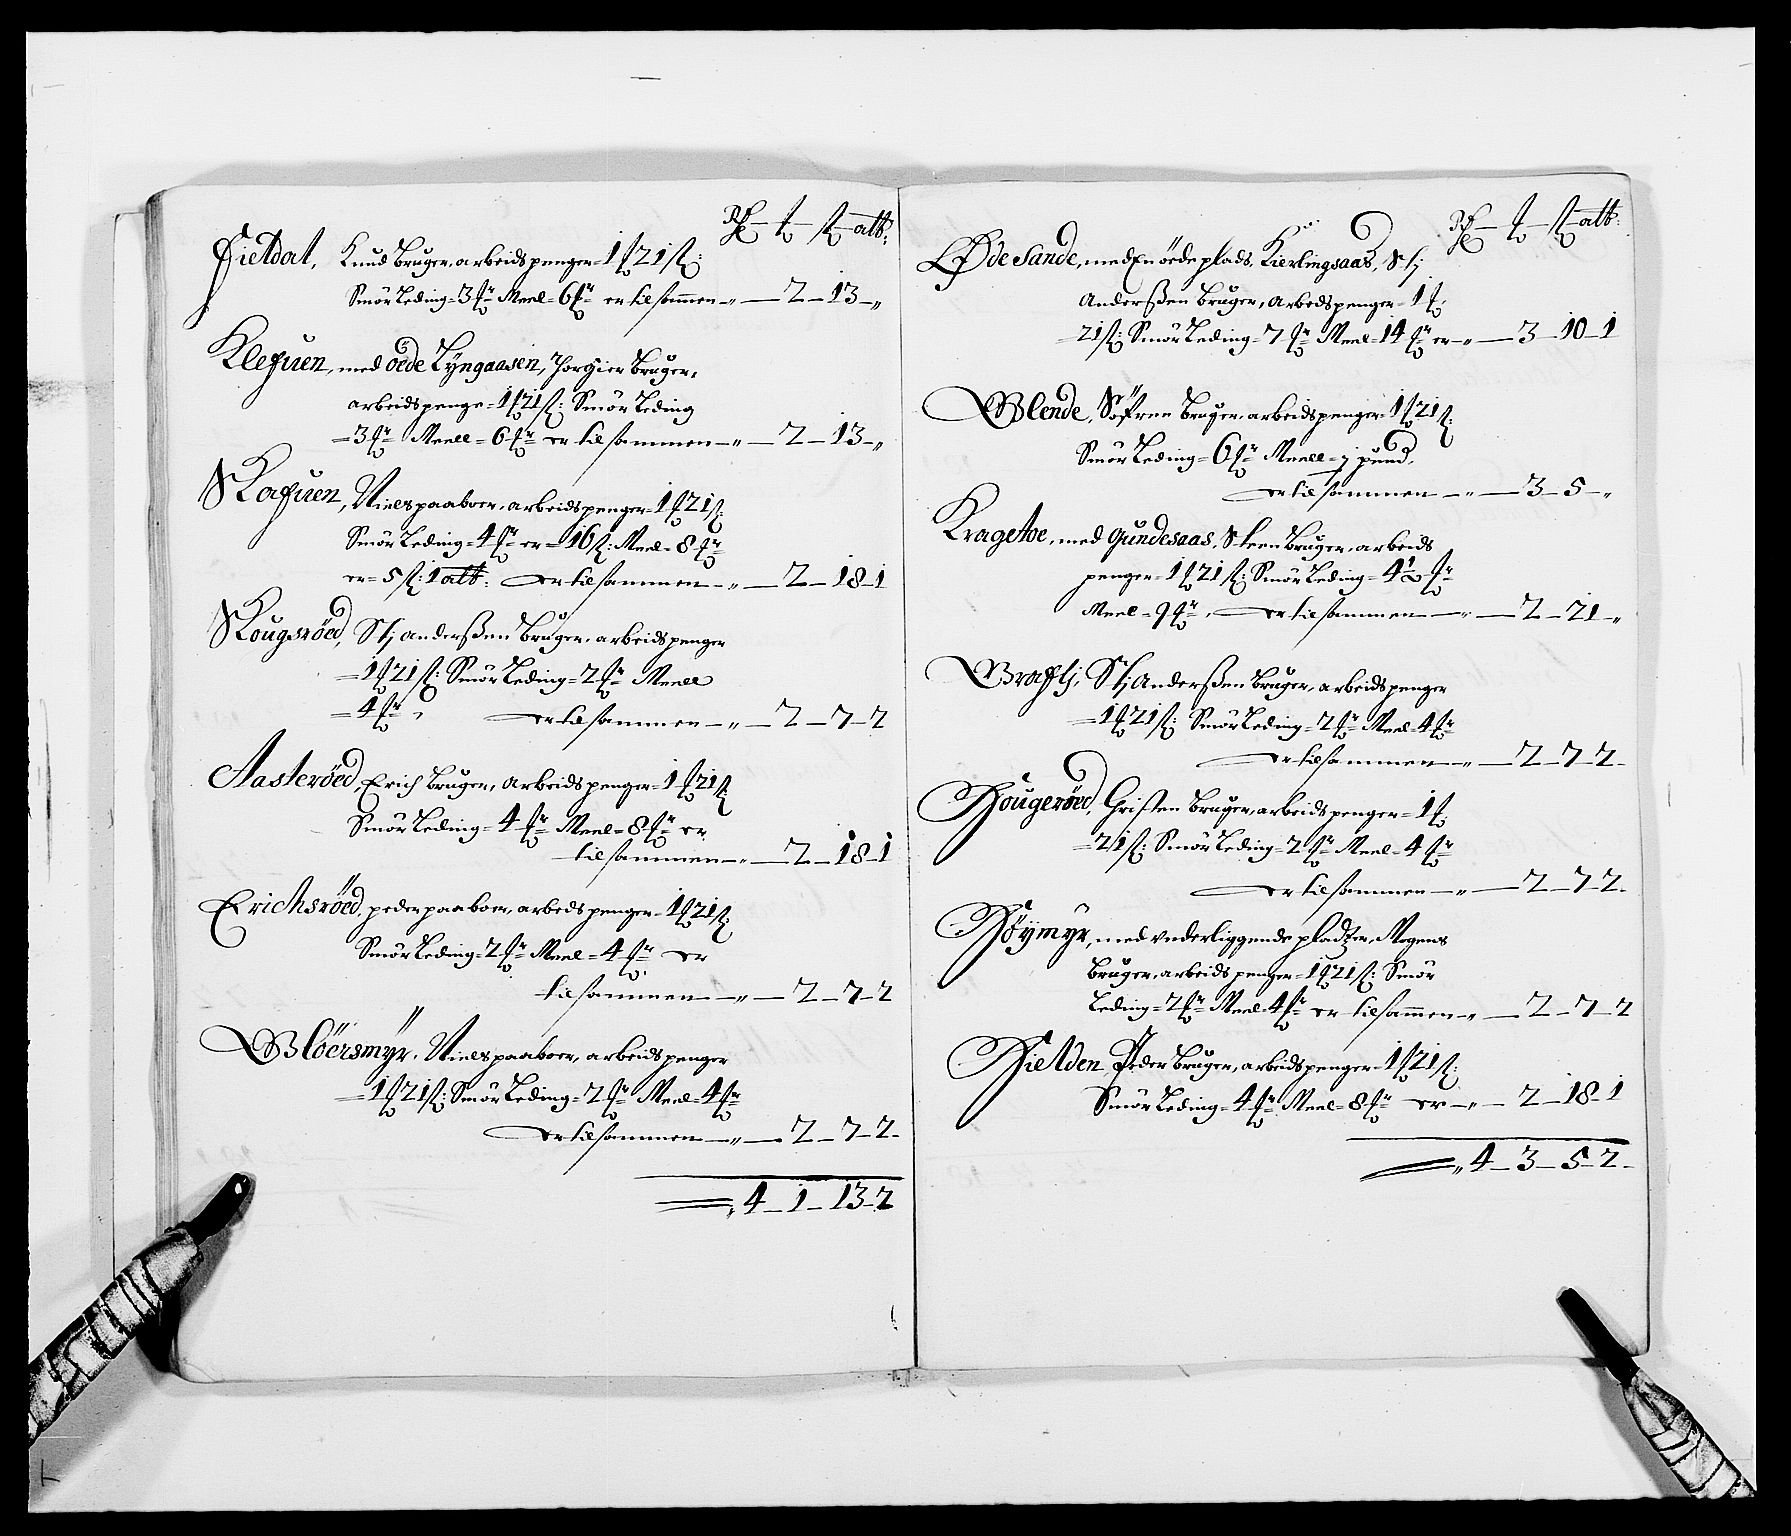 Rdr — ort — ß — alb:
Fieldal, Knud Bruger, arbeidspenger = 1 ort 21 ß:
Smör Leding = 3 mr Meel = 6 mr er tilsammen — „ — 2 — 13 — „
Klefuen, med öede Lÿngaasen, Thorgier Bruger,
arbeidspenge = 1 ort 21 ß: Smör Leding
= 3 mr Meell = 6 mr er tilsammen — „ — 2 — 13 — „
Skafuen, Niels paaboer, arbeidspenger = 1 ort 21 ß:
Smör Leding = 4 mr er = 16 ß: Meel = 8 mr
er = 5 ß: 1 alb: er tilsammen — „ — 2 — 18 — 1
Skougsröed, Stj Anderßen Bruger, arbeidspenger
= 1 ort 21 ß: Smör Leding = 2 mr Meell
= 4 mr, er tilsammen — „ — 2 — 7 — 2
Aasteröed, Erich Bruger, Arbeidspenger = 1 ort 21 ß
Smör Leding = 4 mr Meel = 8 mr er
tilsammen — „ — 2 — 18 — 1
Erichsröed, peder paaboer, arbedspenger = 1 ort 21 ß
Smör Leding = 2 mr Meel = 4 mr er
tilsammen — „ — 2 — 7 — 2
Blöersmÿr, Niels paaboer, arbeidspenger
= 1 ort 21 ß: Smör Leding = 2 mr Meel = 4 mr
er tilsammen — „ — 2 — 7 — 2
„ 4 — 1 — 13 — 2
Rdr — ort — ß — alb:
Öde Sande, med En öede plads, Kierlingsaas, Stj
Anderßen Bruger, Arbedspenger = 1 ort
21 ß: Smör Leding = 7 mr Meel = 14 mr er — „ — 3 — 10 — 1
Blende, Söfren Bruger, arbeidspenger = 1 ort 21 ß:
Smör Leding = 6 mr Meell = j pund,
er tilsammen — „ — 3 — 5 — „
Kragetoe, med gundesaas, Steen Bruger, arbeids
penger = 1 ort 21 ß: Smör Leding = 4 1/2 mr
Meel = 9 mr, er tilsammen — „ — 2 — 21 — „
Braftj, Stj Anderßen Bruger, arbeidspenger
= 1 ort 21 ß: Smör Leding = 2 mr Meel = 4 mr
er tilsammen — „ — 2 — 7 — 2
Hougeröed, Christen Bruger, arbeidspenger = 1 ort
= 21 ß: Smör Leding = 2 mr Meel = 4 mr
er tilsammen — „ — 2 — 7 — 2
Höymÿr, med underliggende pladzer, Mogens
Bruger, arbeidspenger = 1 ort 21 ß: Smör
Leding = 2 mr Meel = 4 mr er tilsammen — „ — 2 — 7 — 2
Hielden, Peder Bruger, arbeidspenger = 1 ort 21 ß:
Smör Leding = 4 mr Meel = 8 mr er — „ — 2 — 18 — 1
„ 4 — 3 — 5 — 2